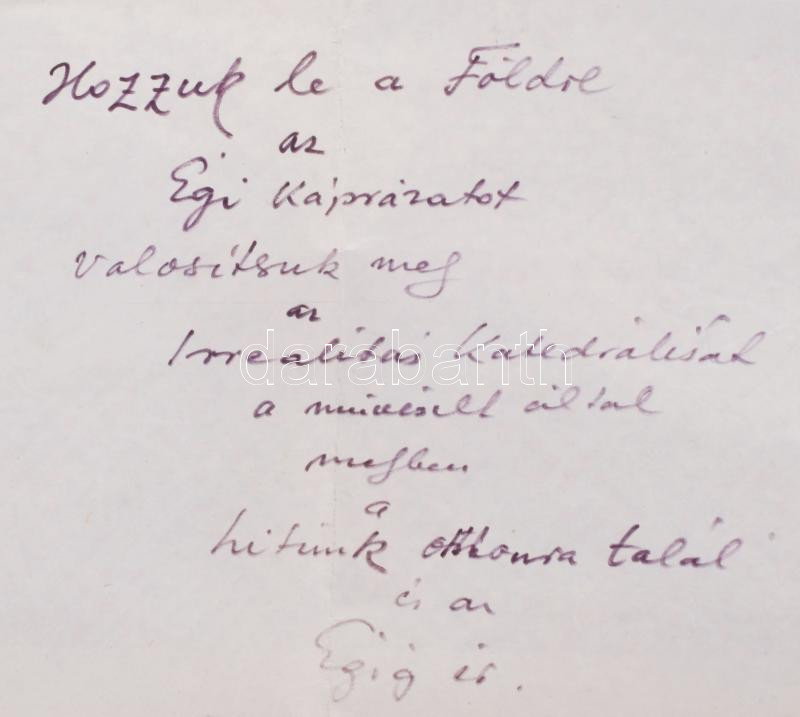 Hozzuk le a Földre
az
Égi Káprázatot
valosítsuk meg
az
Irrealitás Katedrálisát
a művészet által
melyben
a
hitünk otthonra talál
és az
Égig ér.
darabanth